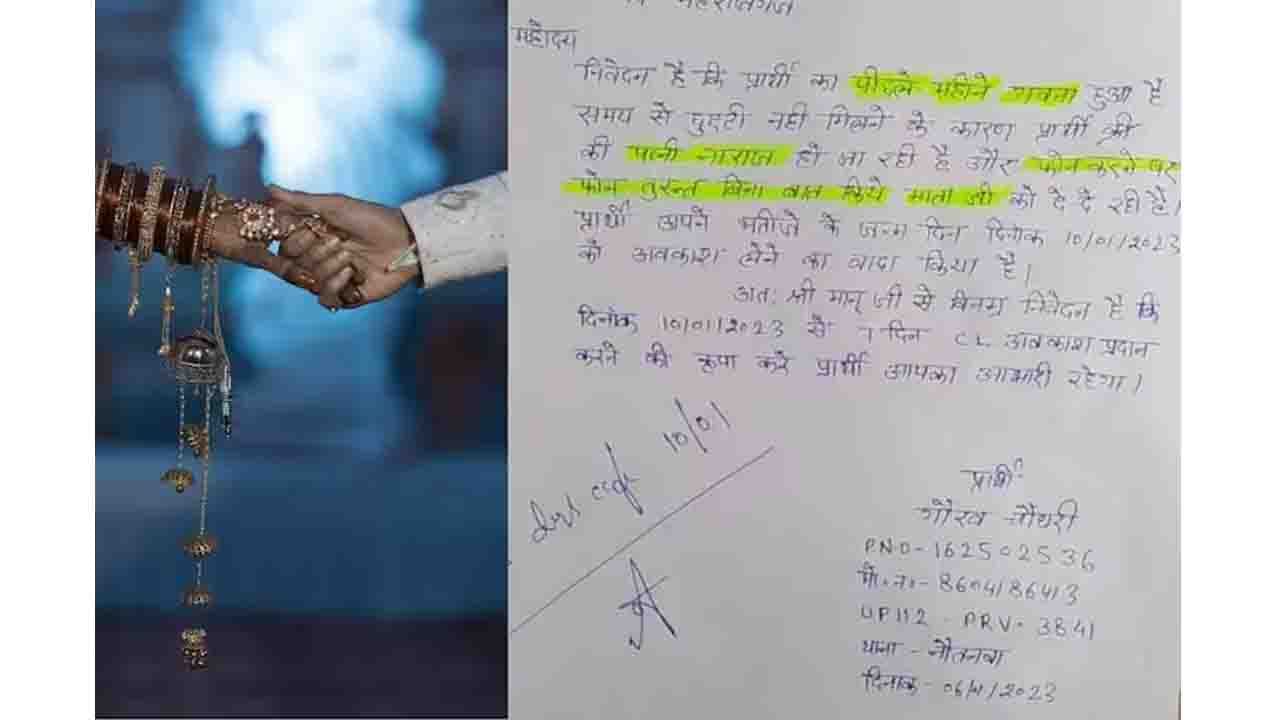 महराजगंज
महोदय
निवेदन है कि प्रार्थी का पीछले महीने गवना हुआ है
समय से छुट्टी नही मिलने के कारण प्रार्थी की
की पत्नी नाराज हो जा रही है और फोन करने पर
फोन तुरन्त बिना बात किये माता जी को दे दे रही है।
प्रार्थी अपने भतीजे के जन्म दिन दिनांक 10/01/2023
को अवकाश होने का वादा किया है।
अतः श्री मान् जी से विनम्र निवेदन है कि
दिनांक 10/01/2023 से 7 दिन CL अवकाश प्रदान
करने की कृपा करे प्रार्थी आपका आभारी रहेगा।
10/01
प्रार्थी
गौरव चौधरी
P.N.O - 162502536
मो. न. - 8604186413
UP112 - PRV - 3841
थाना - नौतनवा
दिनांक - 06/1/2023